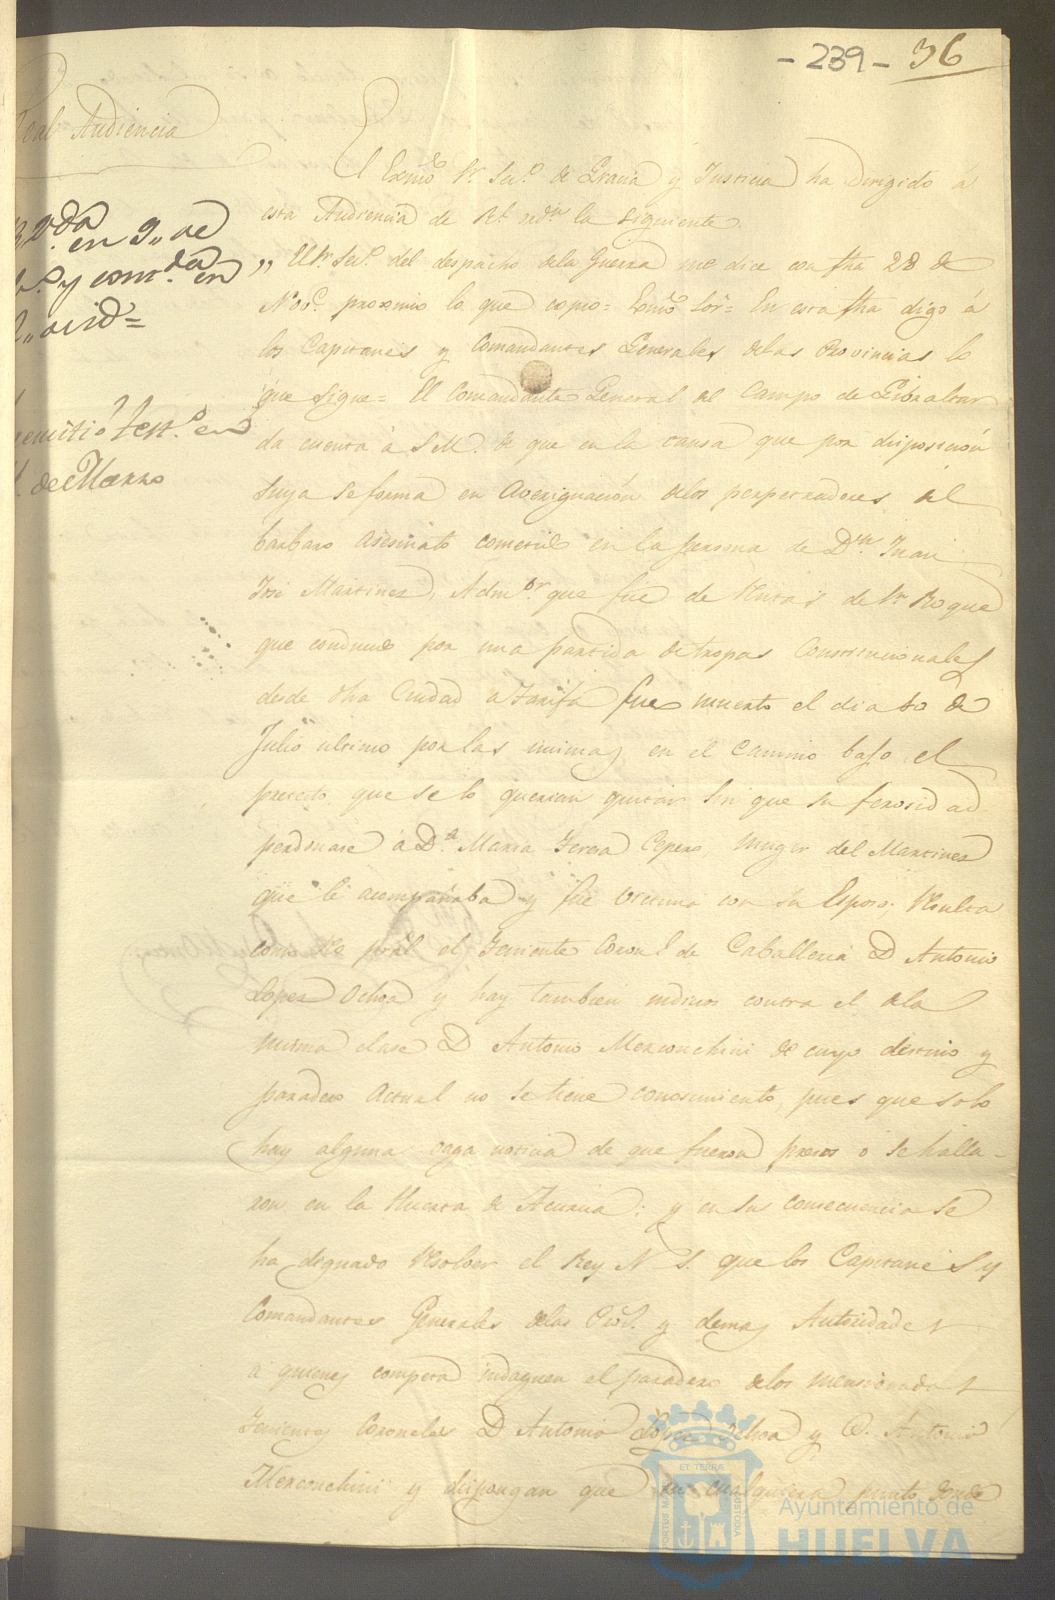 - 239 - 36
Real Audiencia
El Exmô Sr. Seco. de Gracia y Justicia ha dirigido á
esta Audiencia de Rl. ordn la siguiente.
„ El Sr. Seco. del despacho dela Guerra me dice con fha 28 de
Nove. proximo lo que copio = Exmô Sôr = En esta fha digo á
los Capitanes y Comandantes Generales delas Provincias lo
que sigue = El Comandante General del Campo de Gibraltar
da cuenta á S.M. de que en la causa que por disposicion
suya se forma en averiguacion delos perpetradores del
barbaro asesinato cometido en la persona de Dn. Juan
José Martinez, Admor. que fue de Rentas de Sn Roque
que conducido por una partida de tropas Constitucionales
desde dha Ciudad a Tarifa fue muerto el dia 10 de
Julio ultimo por las mismas en el camino bajo el
pretesto que se lo querian quitar sin que su ferosidad
perdonase á Da. Maria Teresa Cepero, muger del Martinez
que le acompañaba y fue victima con su Esposo; resulta
como reo pral el Teniente Coronl de Caballeria D Antonio
Lopez Ochoa y hay tambien indicios contra el dela
misma clase D Antonio Merconchini de cuyo destino y
paradero actual no se tiene conocimiento, pues que solo
hay alguna vaga noticia de que fueron presos ó se halla-
ron en la Huerta de : y en su consecuencia se
ha dignado resolver el Rey N S. que los Capitanes y
Comandantes Generales delas Provs. y demas Autoridades
a quienes competa indaguen el paradero delos mencionados
Tenientes Coroneles D Antonio Lopez Ochoa y D. Antonio
Merconchini y dispongan que en cualquiera punto donde
en 9,, de
y comda en
remitió testo. en
de Marzo
PORTUS MARIS ET TERRÆ CUSTODIA
Ayuntamiento de
HUELVA